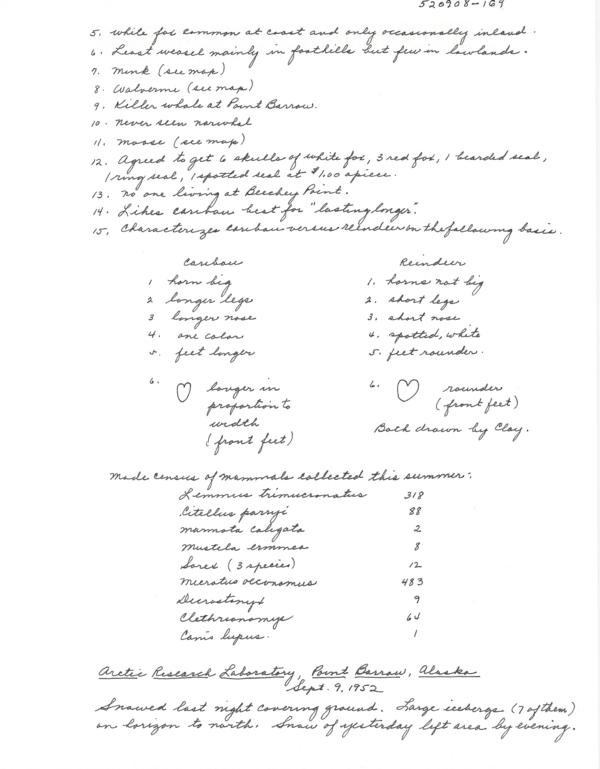 520908-169
5. white fox common at coast and only occasionally inland.
6. Least weasel mainly in foothills but few in lowlands.
7. Mink (see map)
8. Wolverine (see map)
9. Killer whale at Point Barrow.
10. never seen narwhal
11. moose (see map)
12. Agreed to get 6 skulls of white fox, 3 red fox, 1 bearded seal,
1 ring seal, 1 spotted seal at $1.00 apiece.
13. no one living at Beechey Point.
14. Likes caribou best for "lasting longer".
15. Characterizes caribou versus reindeer on the following basis.
Caribou Reindeer
1 horn big 1. horns not big
2 longer legs 2. short legs
3 longer nose 3. short nose
4. one color 4. spotted, white
5. feet longer 5. feet rounder.
6. longer in 6. rounder
proportion to (front feet)
width Both drawn by Clay.
(front feet)
Made census of mammals collected this summer:
Lemmus trimucronatus 318
Citellus parryi 88
marmota caligata 2
Mustela erminea 8
Sorex (3 species) 12
Microtus oeconomus 483
Dicrostonyx 9
Clethrionomys 64
Canis lupus. 1
Arctic Research Laboratory, Point Barrow, Alaska
Sept. 9, 1952
Snowed last night covering ground. Large icebergs (7 of them)
on horizon to north. Snow of yesterday left area by evening.